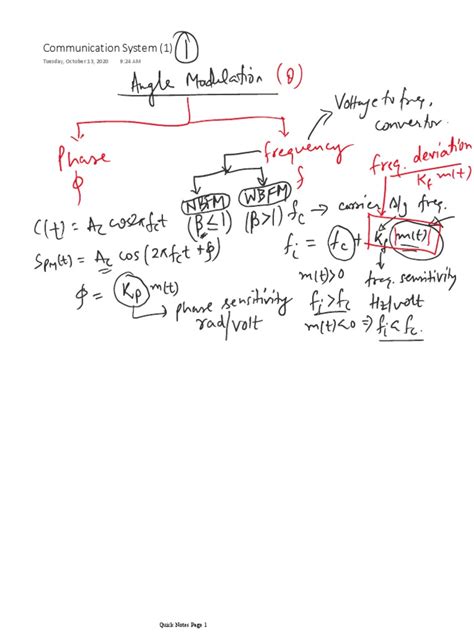 Communication System (1) 1
Tuesday, October 13, 2020 9:24 AM
Angle Modulation (θ)
Voltage to freq. convertor.
Phase
ϕ
frequency
f
freq. deviation
Kf m(t)
NBFM
(β≤1)
WBFM
(β>1)
fc → carrier s/g freq.
c(t) = Ac cos2πfct
SPM(t) = Ac cos(2πfct + ϕ)
ϕ = Kp m(t)
phase sensitivity
rad/volt
fi = fc + Kf m(t)
freq. sensitivity
Hz/volt
m(t)>0
fi>fc
m(t)<0 ⇒ fi<fc.
Quick Notes Page 1